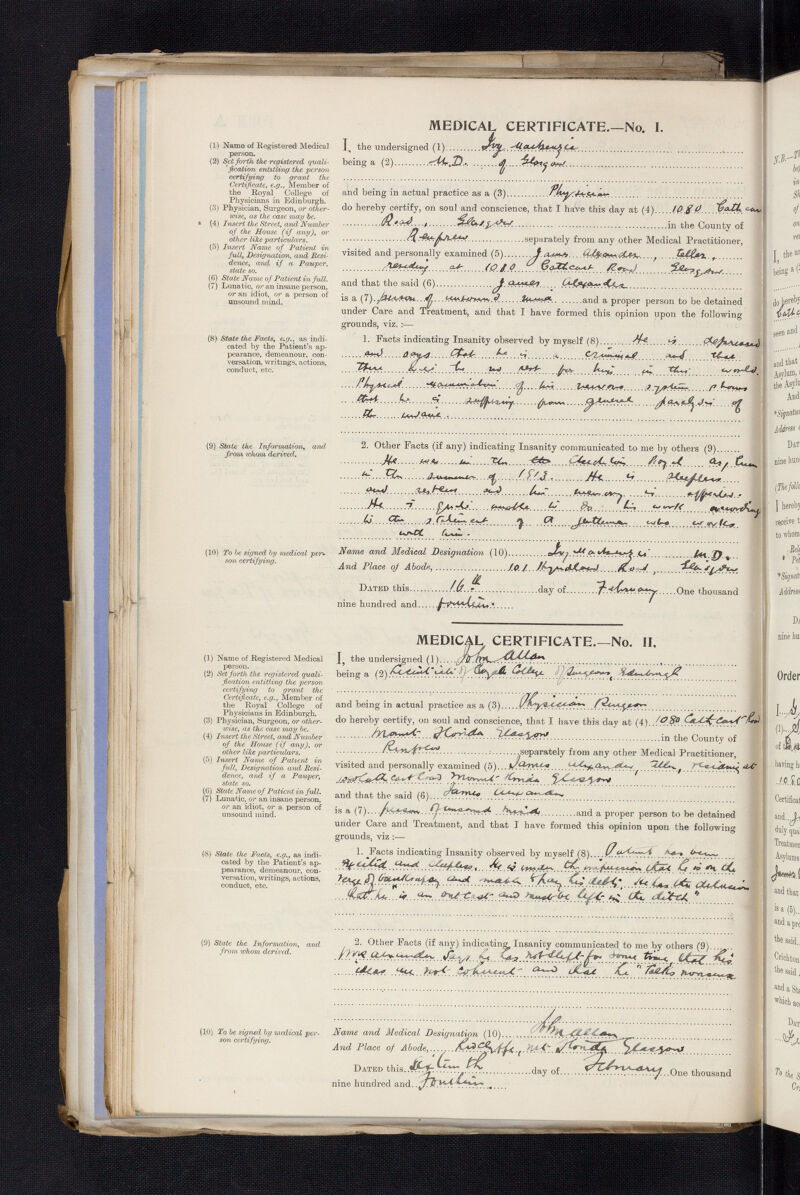 MEDICAL CERTIFICATE.—No. I.
(1) Name of Registered Medical person.
(2) Set forth the registered qualification entitling the person certifying to grant the Certificate, e.g., Member of the Royal College of Physicians in Edinburgh.
(3) Physician, Surgeon, or otherwise, as the case may be.
(4) Insert the Street, and Number of the House (if any), or other like particulars.
(5) Insert Name of Patient in full, Designation, and Residence, and if a Pauper, state so.
(6) State Name of Patient in full.
(7) Lunatic, or an insane person, or an idiot, or a person of unsound mind.
I, the undersigned (1) Ivy Mackenzie
being a (2) M.D. of Glasgow
and being in actual practice as a (3) Physician
do hereby certify, on soul and conscience, that I have this day at (4) 1080 Cathcart
Road, Glasgow in the County of
Renfrew separately from any other Medical Practitioner,
visited and personally examined (5) James Alexander, Teller,
residing at 1080 Cathcart Road Glasgow
and that the said (6) James Alexander
is a (7) person of unsound mind and a proper person to be detained
under Care and Treatment, and that I have formed this opinion upon the following
grounds, viz. :—
(8) State the Facts, e.g., as indicated by the Patient's appearance, demeanour, conversation, writings, actions, conduct, etc.
1. Facts indicating Insanity observed by myself (8) He is depressed
and says that he is a criminal and that
there will be no rest for him in this world.
Physical examination of his nervous system shows
that he is suffering from general paralysis of
the insane.
(9) State the Information, and from whom derived.
2. Other Facts (if any) indicating Insanity communicated to me by others (9)
He was in the Crichton Royal Asylum
in the summer of 1913. He is sleepless
and restless and his memory is affected.
He is quite unable to do his work according
to the statement of a gentleman who works
with him.
(10) To be signed by medical person certifying.
Name and Medical Designation (10) Ivy Mackenzie M.D.
And Place of Abode, 101 Hyndland Road, Glasgow
DATED this 16th day of February One thousand
nine hundred and fourteen.
MEDICAL CERTIFICATE.—No. II.
(1) Name of Registered Medical person.
(2) Set forth the registered qualification entitling the person certifying to grant the Certificate, e.g., Member of the Royal College of Physicians in Edinburgh.
(3) Physician, Surgeon, or otherwise, as the case may be.
(4) Insert the Street, and Number of the House (if any), or other like particulars.
(5) Insert Name of Patient in full, Designation, and Residence, and if a Pauper, state so.
(6) State Name of Patient in full.
(7) Lunatic, or an insane person, or an idiot, or a person of unsound mind.
I, the undersigned (1) John Allan
being a (2) Licentiate of Royal College of Surgeons, Edinburgh
and being in actual practice as a (3) Physician Surgeon
do hereby certify, on soul and conscience, that I have this day at (4) 1080 Cathcart Road
Mount Florida Glasgow in the County of
Renfrew separately from any other Medical Practitioner,
visited and personally examined (5) James Alexander, Teller, residing at
1080 Cathcart Road Mount Florida Glasgow
and that the said (6) James Alexander
is a (7) person of unsound mind and a proper person to be detained
under Care and Treatment, and that I have formed this opinion upon the following
grounds, viz :—
(8) State the Facts, e.g., as indicated by the Patient's appearance, demeanour, conversation, writings, actions, conduct, etc.
1. Facts indicating Insanity observed by myself (8) Patient has been
excited and sleepless. He is under the impression that he is on the
verge of bankruptcy and unable to pay his debts. He has the delusion
that he "is an outcast and must be left in the ditch"
(9) State the Information, and from whom derived.
2. Other Facts (if any) indicating Insanity communicated to me by others (9)
Mrs Alexander says he has not slept for some time, that his
ideas are not coherent and that he "talks nonsense
(10) To be signed by medical person certifying.
Name and Medical Designation (10) John Allan
And Place of Abode, Mt Florida, Glasgow
DATED this Sixteenth day of February One thousand
nine hundred and Fourteen.